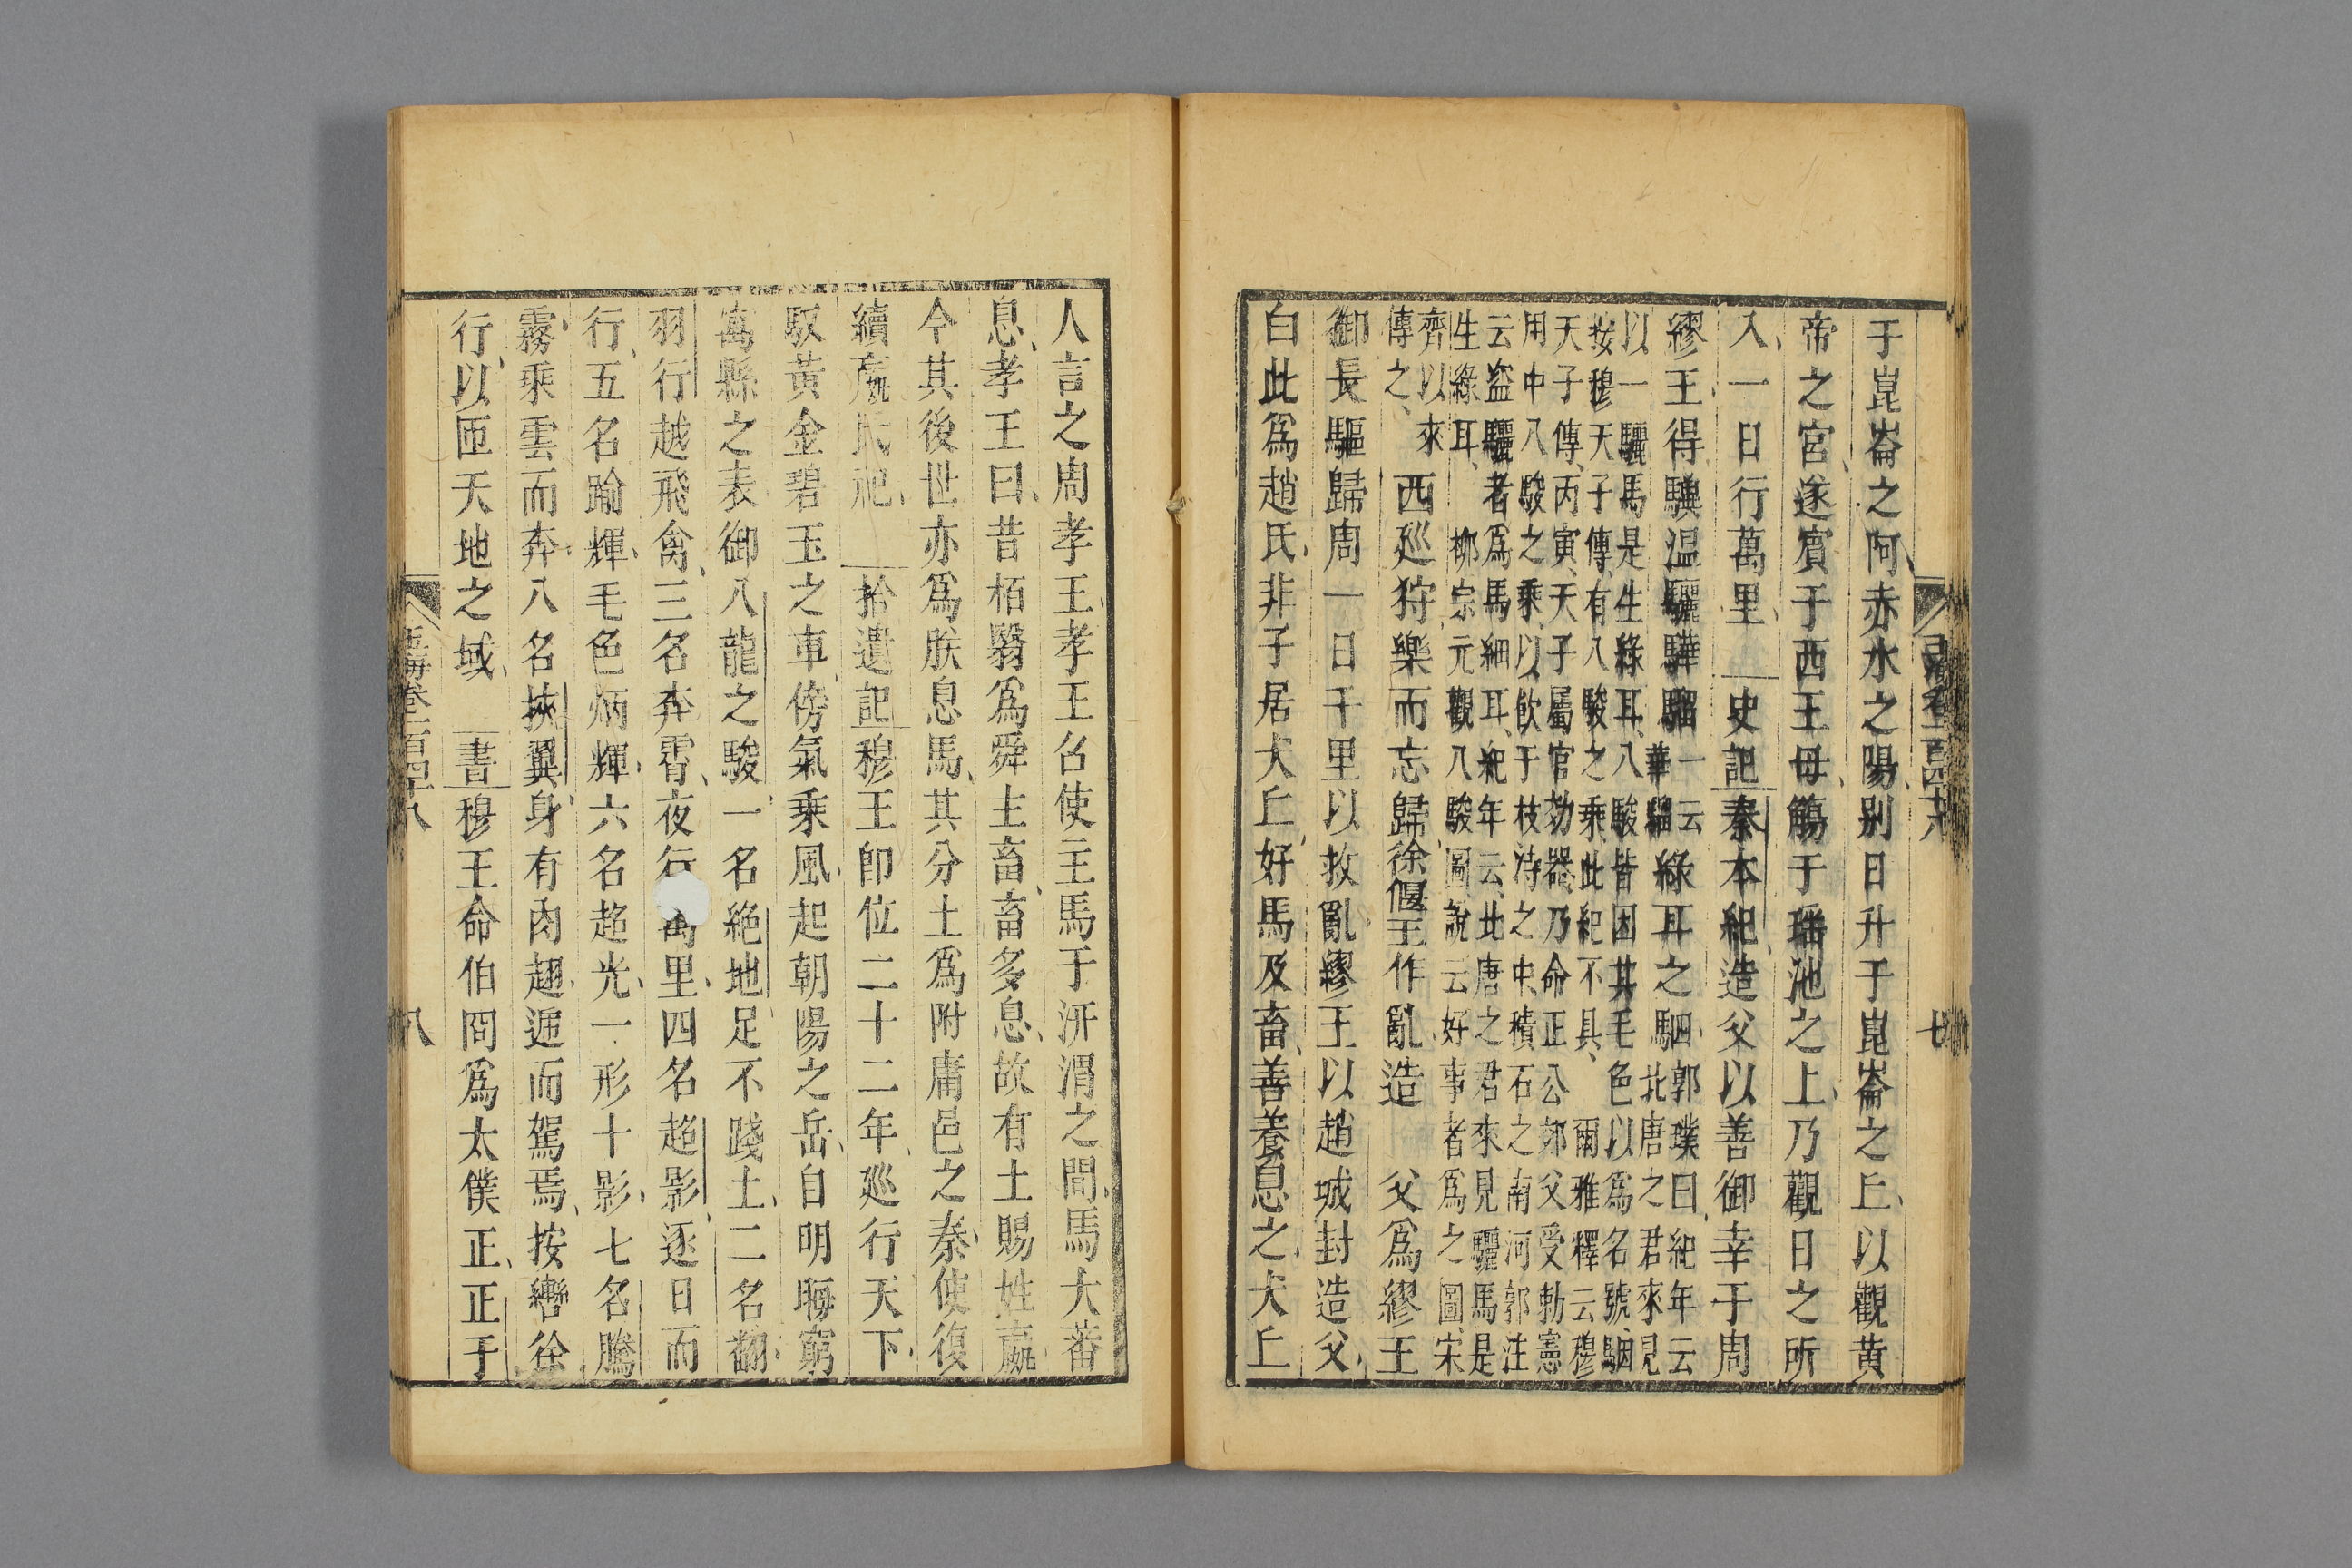 于崑崙之阿赤水之陽别日升于崑崙之丘以觀黄
帝之宫遂賓于西王母觴于瑤池之上乃觀日之所
入一日行萬里 史記秦本紀造父以善御幸于周
繆王得驥温驪驊騮一云華騮緑耳之駟郭璞曰紀年云北唐之君來見
以一驪馬是生緑耳八駿皆因其毛色以為名號駰
按穆天子傳有八駿之乘此紀不具 爾雅釋云穆
天子傳丙寅天子屬官効器乃命正公郊父受勅憲
用申八駿之乘以飲于枝洔之中積石之南河郭注
云盗驪者為馬細耳紀年云北唐之君來見驪馬是
生緑耳 柳宗元觀八駿圖說云好事者為之圖宋
齊以來傳之 西廵狩樂而忘歸徐偃王作亂造 父為繆王
御長驅歸周一日千里以救亂繆王以趙城封造父
白此為趙氏非子居犬丘好馬及畜善養息之犬丘
七
人言之周孝王孝王召使主馬于汧渭之間馬大蕃
息孝王曰昔栢翳為舜主畜畜多息故有土賜姓嬴
今其後世亦為朕息馬其分土為附庸邑之秦使復
續嬴氏祀 拾遺記穆王即位二十二年廵行天下
馭黃金碧玉之車傍氣乗風起朝陽之岳自明晦窮
寓縣之表御八龍之駿一名絶地足不踐土二名翻
羽行越飛禽三名奔霄夜行萬里四名超影逐日而
行五名踰輝毛色炳輝六名超光一形十影七名騰
霧乘雲而奔八名挾翼身有肉翅遞而駕焉按轡徐
行以匝天地之域 書穆王命伯冏為太僕正正于
玉海卷一百四十八
八